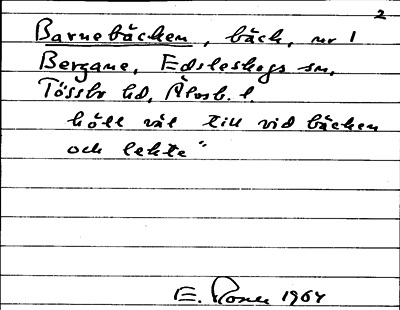 2
Barnebäcken, bäck, nr 1
Bergane, Edsleskogs sn,
Tössbo hd, Älvsb. l.
höll väl till vid bäcken
och lekte"
E. Rosell 1964